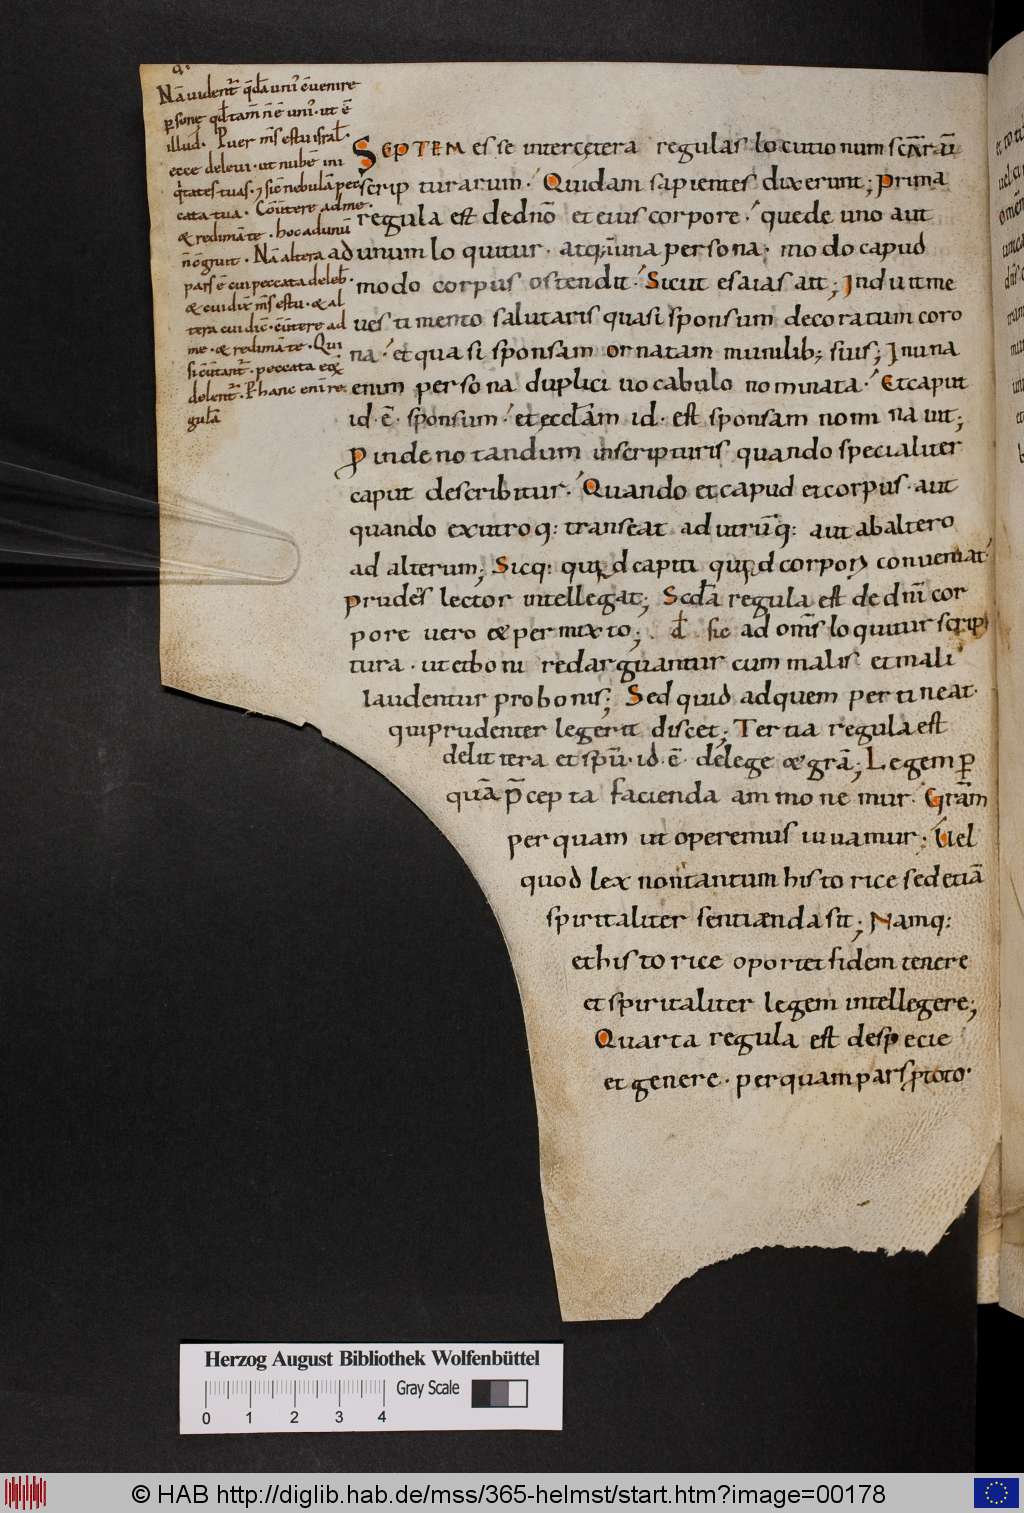 Nā uident̄ q̄dā uni' ēuenire
ꝑsonę qđ tam̄ n̄ ē uni'. ut ē
illud. Puer ms̄ es tu isrl̄.
ecce deleui. ut nubē ini
q̄tates tuas. ⁊ sic nebulā pec
cata tua. Cōuertere ad me.
& redimā te. hoc ad unū
n̄ ↄgruit. Nā altera
pars ē cui peccata deleb̄.
& cui dic̄ ms̄ es tu. & al
tera cui dic̄. cōuertere ad
me. & redimā te. Qui
si cōuertant̄. peccata eoꝝ
delent̄. P hanc enī re
gulā
SEPTEM esse inter cętera regulas locutionum scāraꝝ
scripturarum. Quidam sapientes dixerunt; Prima
regula est de dn̄o et eius corpore. que de uno aut
ad unum loquitur. atq; in una persona. modo capud
modo corpus ostendit. Sicut esaias ait; Induit me
uestimento salutaris quasi sponsum decoratum coro
na. et quasi sponsam ornatam munilib; suis; In una
enim persona duplici uocabulo nominata. Et caput
id. ē. sponsum. et ęccl̄am id. est sponsam nominauit;
Proinde notandum in scripturis quando specialiter
caput describitur. Quando et capud et corpus. aut
quando ex utroq: transeat ad utrūq: aut ab altero
ad alterum; Sicq: quid capiti quid corpori conueniat.
prudens lector intellegat; Scđa regula est de dn̄i cor
pore uero & permixto; sic ad om̄s loquitur scrip
tura. ut et boni redarguantur cum malis et mali
laudentur pro bonis; Sed quid ad quem pertineat.
qui prudenter legerit discet; Tertia regula est
de littera et spū. id. ē. de lege & grā; Legem ꝑ
quā p̄cepta facienda ammonemur. Grām
per quam ut operemus iuuamur. Uel
quod lex non tantum historice sed etiā
spiritaliter sentienda sit; Namq:
et historice oportet fidem tenere
et spiritaliter legem intellegere;
Quarta regula est de specie
et genere. per quam pars ꝓ toto.
Herzog August Bibliothek Wolfenbüttel
Gray Scale
0 1 2 3 4
© HAB http://diglib.hab.de/mss/365-helmst/start.htm?image=00178